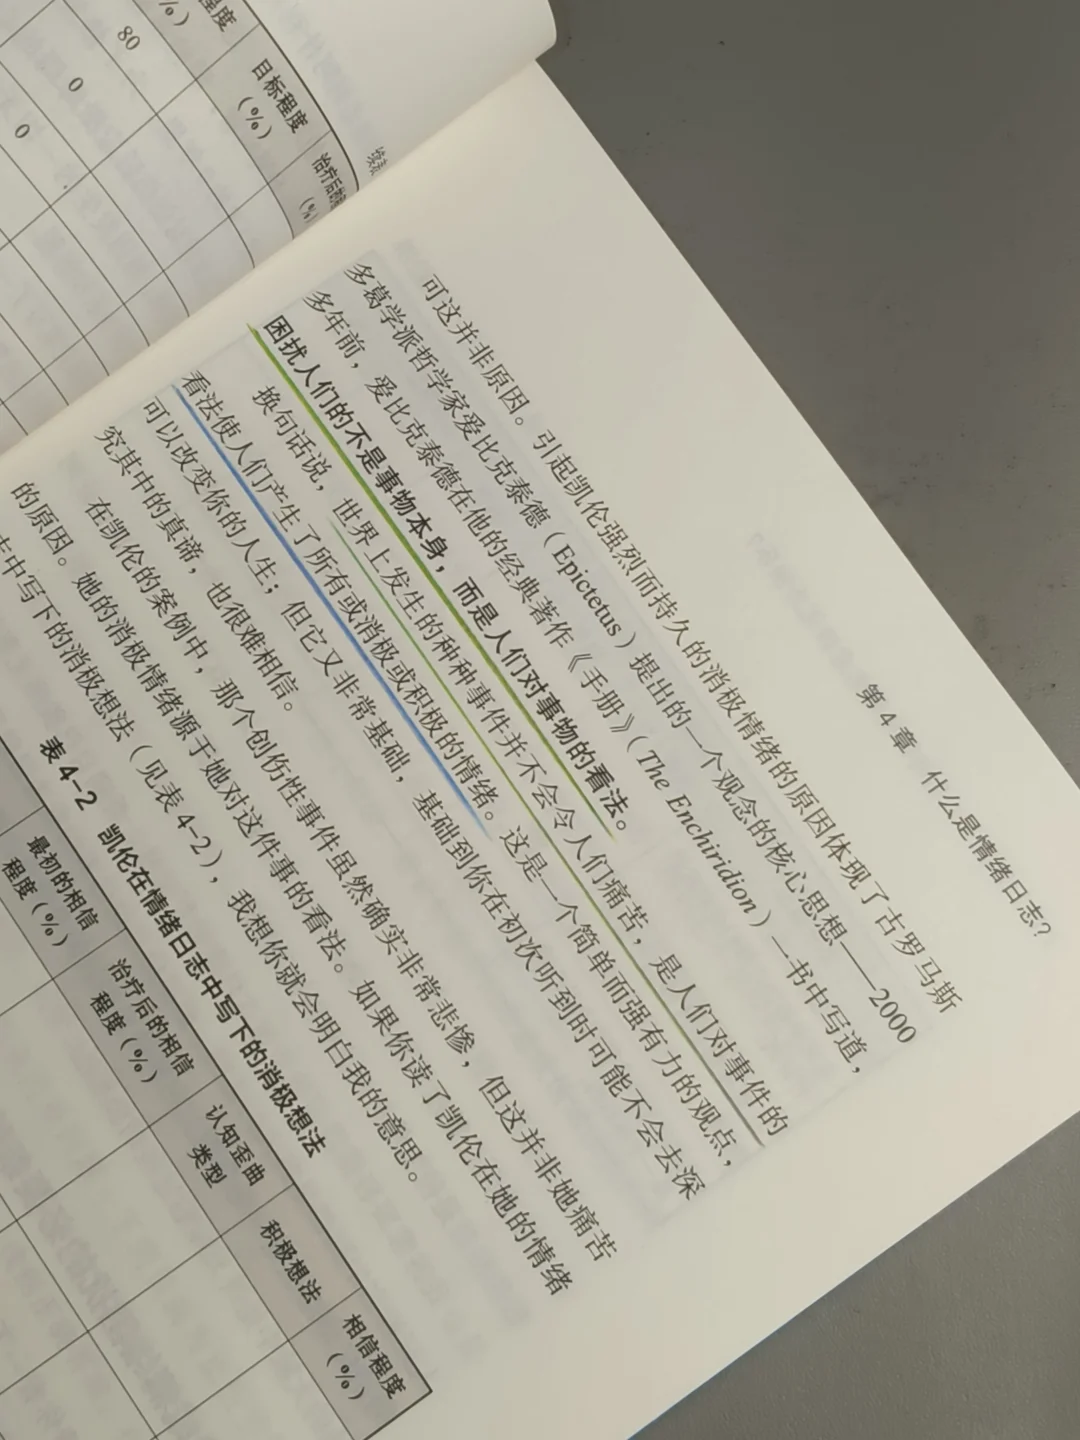 程度
%)
80
目标程度
(%)
0
0
治疗后
(%)
第4章 什么是情绪日志?
可这并非原因。引起凯伦强烈而持久的消极情绪的原因体现了古罗马斯
多葛学派哲学家爱比克泰德（Epictetus）提出的一个观念的核心思想——2000
多年前，爱比克泰德在他的经典著作《手册》（The Enchiridion）一书中写道，
困扰人们的不是事物本身，而是人们对事物的看法。
换句话说，世界上发生的种种事件并不会令人们痛苦，是人们对事件的
看法使人们产生了所有或消极或积极的情绪。这是一个简单而强有力的观点，
可以改变你的人生；但它又非常基础，基础到你在初次听到时可能不会去深
究其中的真谛，也很难相信。
在凯伦的案例中，那个创伤性事件虽然确实非常悲惨，但这并非她痛苦
的原因。她的消极情绪源于她对这件事的看法。如果你读了凯伦在她的情绪
志中写下的消极想法（见表4-2），我想你就会明白我的意思。
表4-2 凯伦在情绪日志中写下的消极想法
最初的相信
程度（%）
治疗后的相信
程度（%）
认知歪曲
类型
积极想法
相信程度
（%）